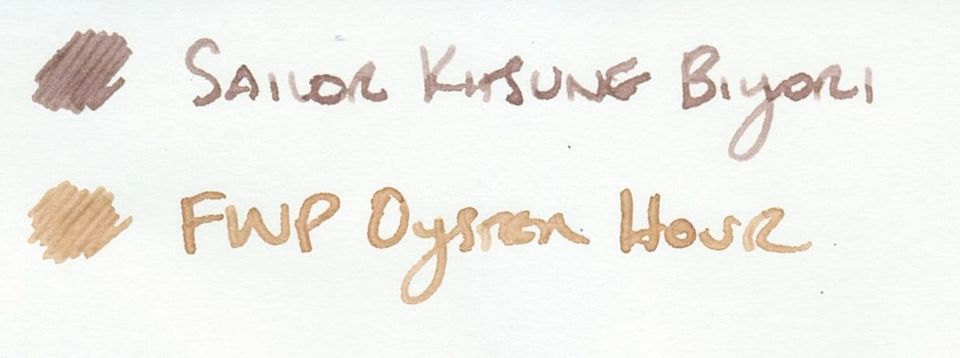 Sailor Kitsune Biyori
FWP Oyster Hour